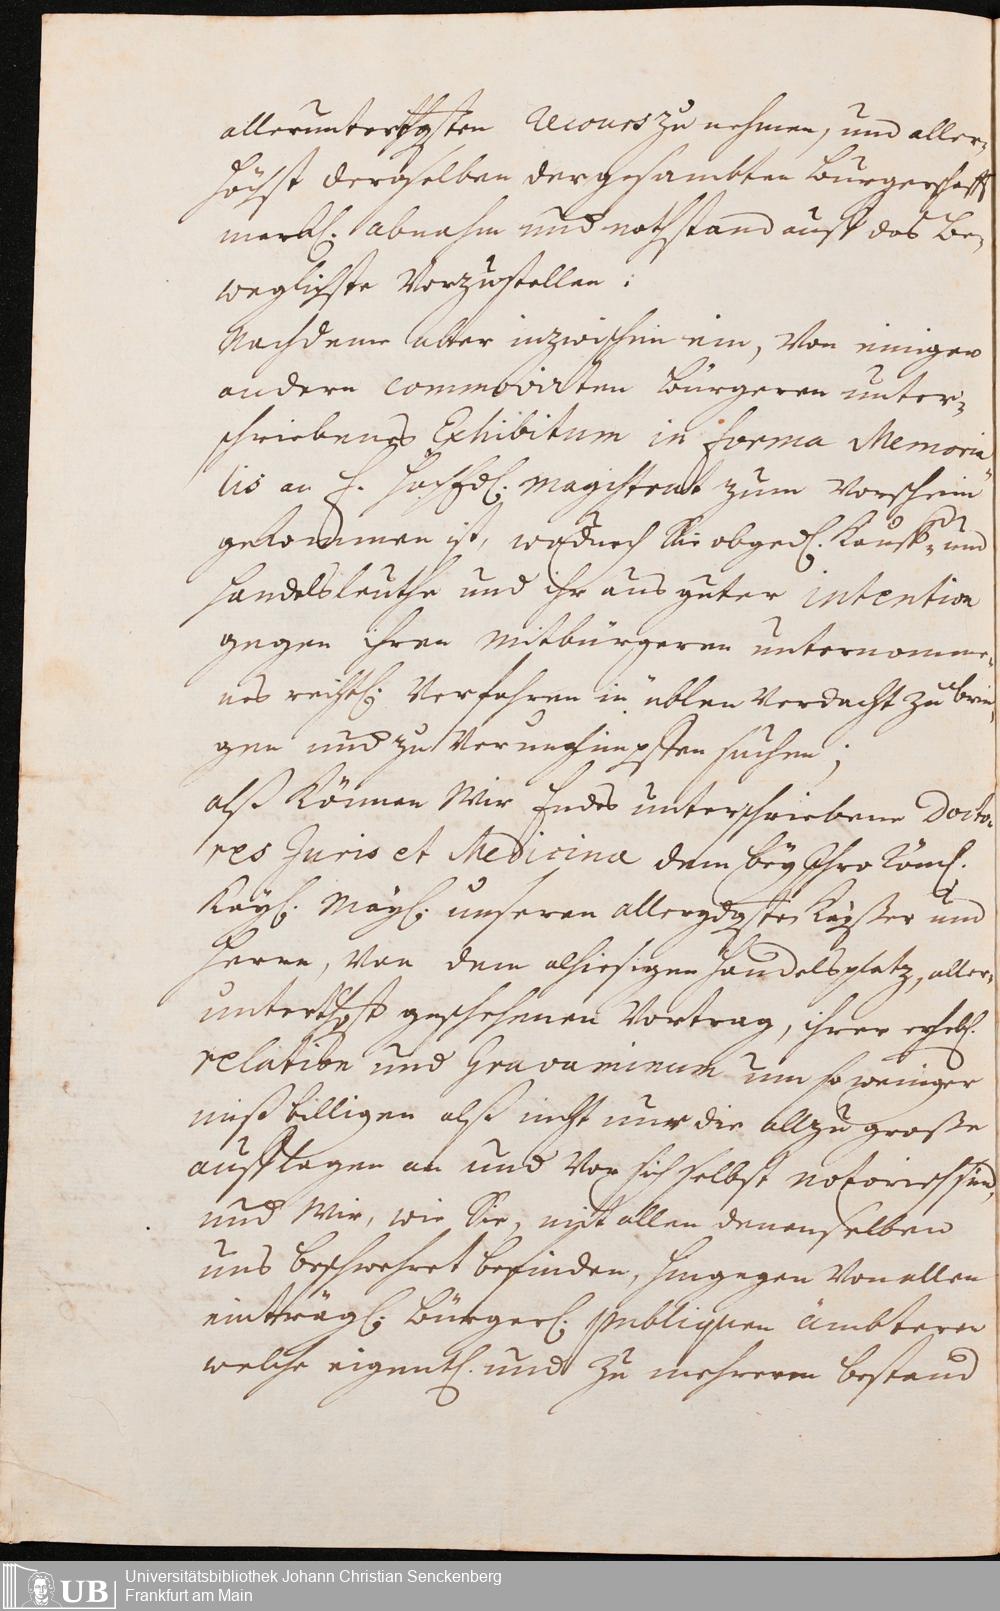 allerunterthgsten Recours zu nehmen, und aller-
höchst derselben der gesambten Burgerschafft
merkl. abnahm und nothstand auff das Be-
weglichste Vorzustellen:
Nachdeme aber inzwischen ein, Von einigen
andern commovirten Bürgeren unter-
schriebenes Exhibitum in forma Memoria-
lis an E. HochEdl. Magistrat zum Vorschein
gekommen ist, wodurch Sie obged. Kauff- und
Handelsleuthe und ihr aus guter intention
gegen ihren Mitbürgeren unternomme-
nes rechtl. Verfahren in üblen Verdacht zu brin-
gen und zu Verunglimpffen suchen;
alß Können Wir Endes unterschriebene Docto-
res Juris et Medicinæ dem bey Ihro Röml.
Kayl. Mayl. unseren allergdgsten Kayßer und
Herrn, Von dem alhiesigen Handelsplatz, aller-
unterthgst geschehenen Vortrag, ihrer erhebl.
relation und Gravaminum um so weniger
mißbilligen alß nicht nur die allzu große
aufflagen an und Vor sich selbst notorisch sind,
und Wir, wie Sie, mit allen denenselben
uns beschwehret befinden, hingegen Von allen
einträgl. Bürgerl. publiquen ämbtern
welche eigentl. und zu mehrerem bestand
Universitätsbibliothek Johann Christian Senckenberg
UB Frankfurt am Main